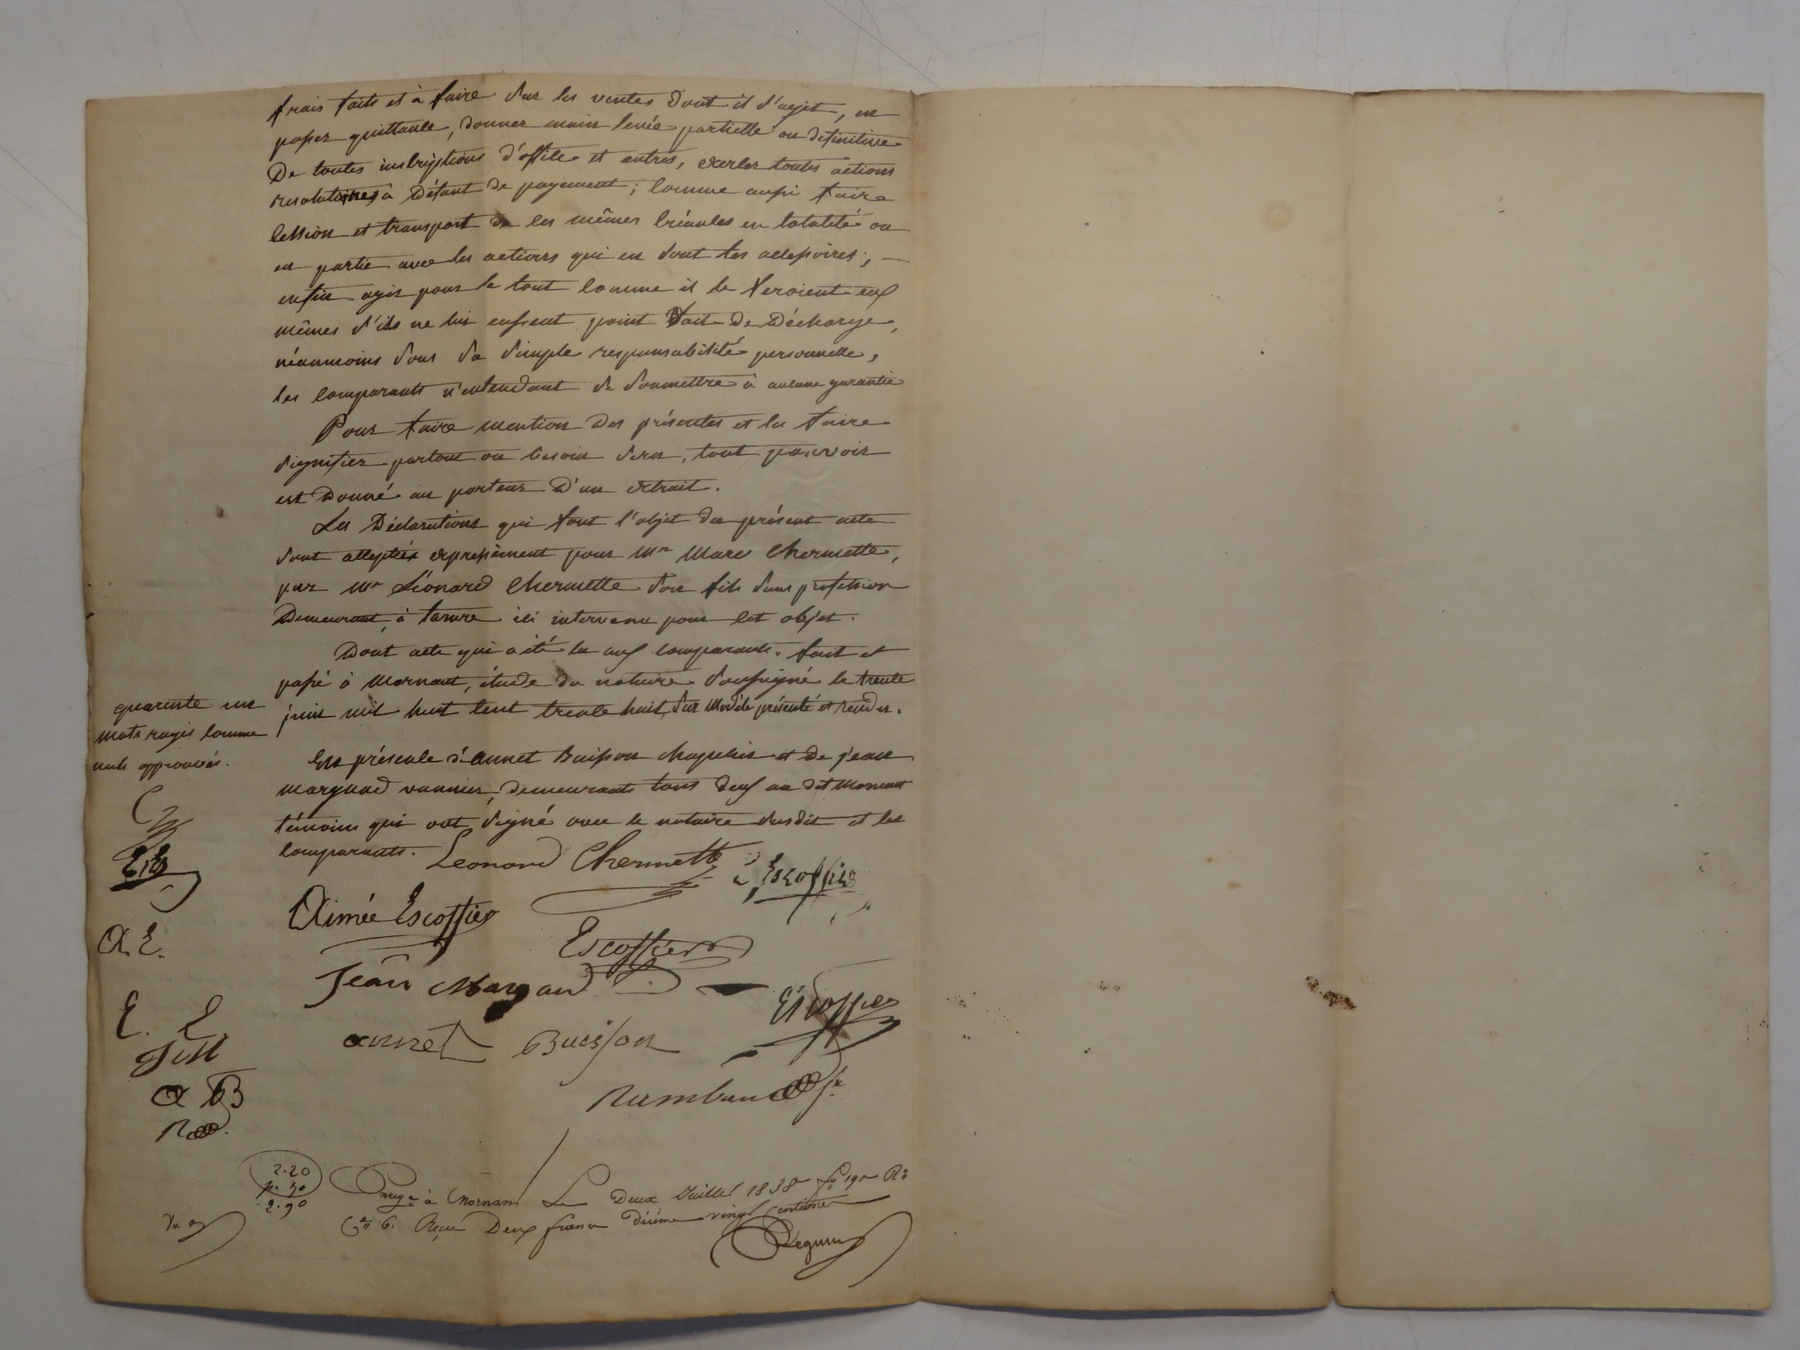 frais faits et à faire sur les ventes dont il s'agit, en
passer quittance, donner main levée partielle ou définitive
De toutes inscriptions d'office et autres, exercer toutes actions
résolutoires à Défaut de payement; comme aussi faire
cession et transport de ces mêmes créances en totalité ou
en partie avec les actions qui en sont les accessoires; —
enfin agir pour le tout comme il le feroient eux
mêmes s'ils ne lui eussent point fait De Décharge,
néanmoins sous sa simple responsabilité personnelle,
les comparants n'entendant se soumettre à aucune garantie
Pour faire mention des présentes et les faire
signifier partout ou besoin sera, tout pouvoir
est Donné au porteur D'un extrait.
Les Déclarations qui font l'objet du présent acte
sont acceptées expressément pour Mr Marc Chermette,
par Mr Léonard Chermette son fils sans profession
Demeurant à tarare ici intervenu pour cet objet.
Dont acte qui a été lu aux comparants. fait et
passé à Mornant, étude du notaire soussigné le trente
juin mil huit cent trente huit, sur Modèle présenté et rendu.
En présence d'annet Buisson chapelier et de jean
margand vannier, demeurants tous deux au dit Mornant
témoins qui ont signé avec le notaire susdit et les
comparants.
quarente un
mots rayés comme
nuls approuvés.
Leonard Chermette
Escoffier
Aimée Escoffier
Escoffier
Jean Margand
Escoffier
annet Buisson
A E.
E. E.
A B
2.20
p. 70
2.90
Enregé à Mornant Le Deux Juillet 1838 fo 190 Ro
Ce 6. Reçu Deux francs dixième vingt centimes